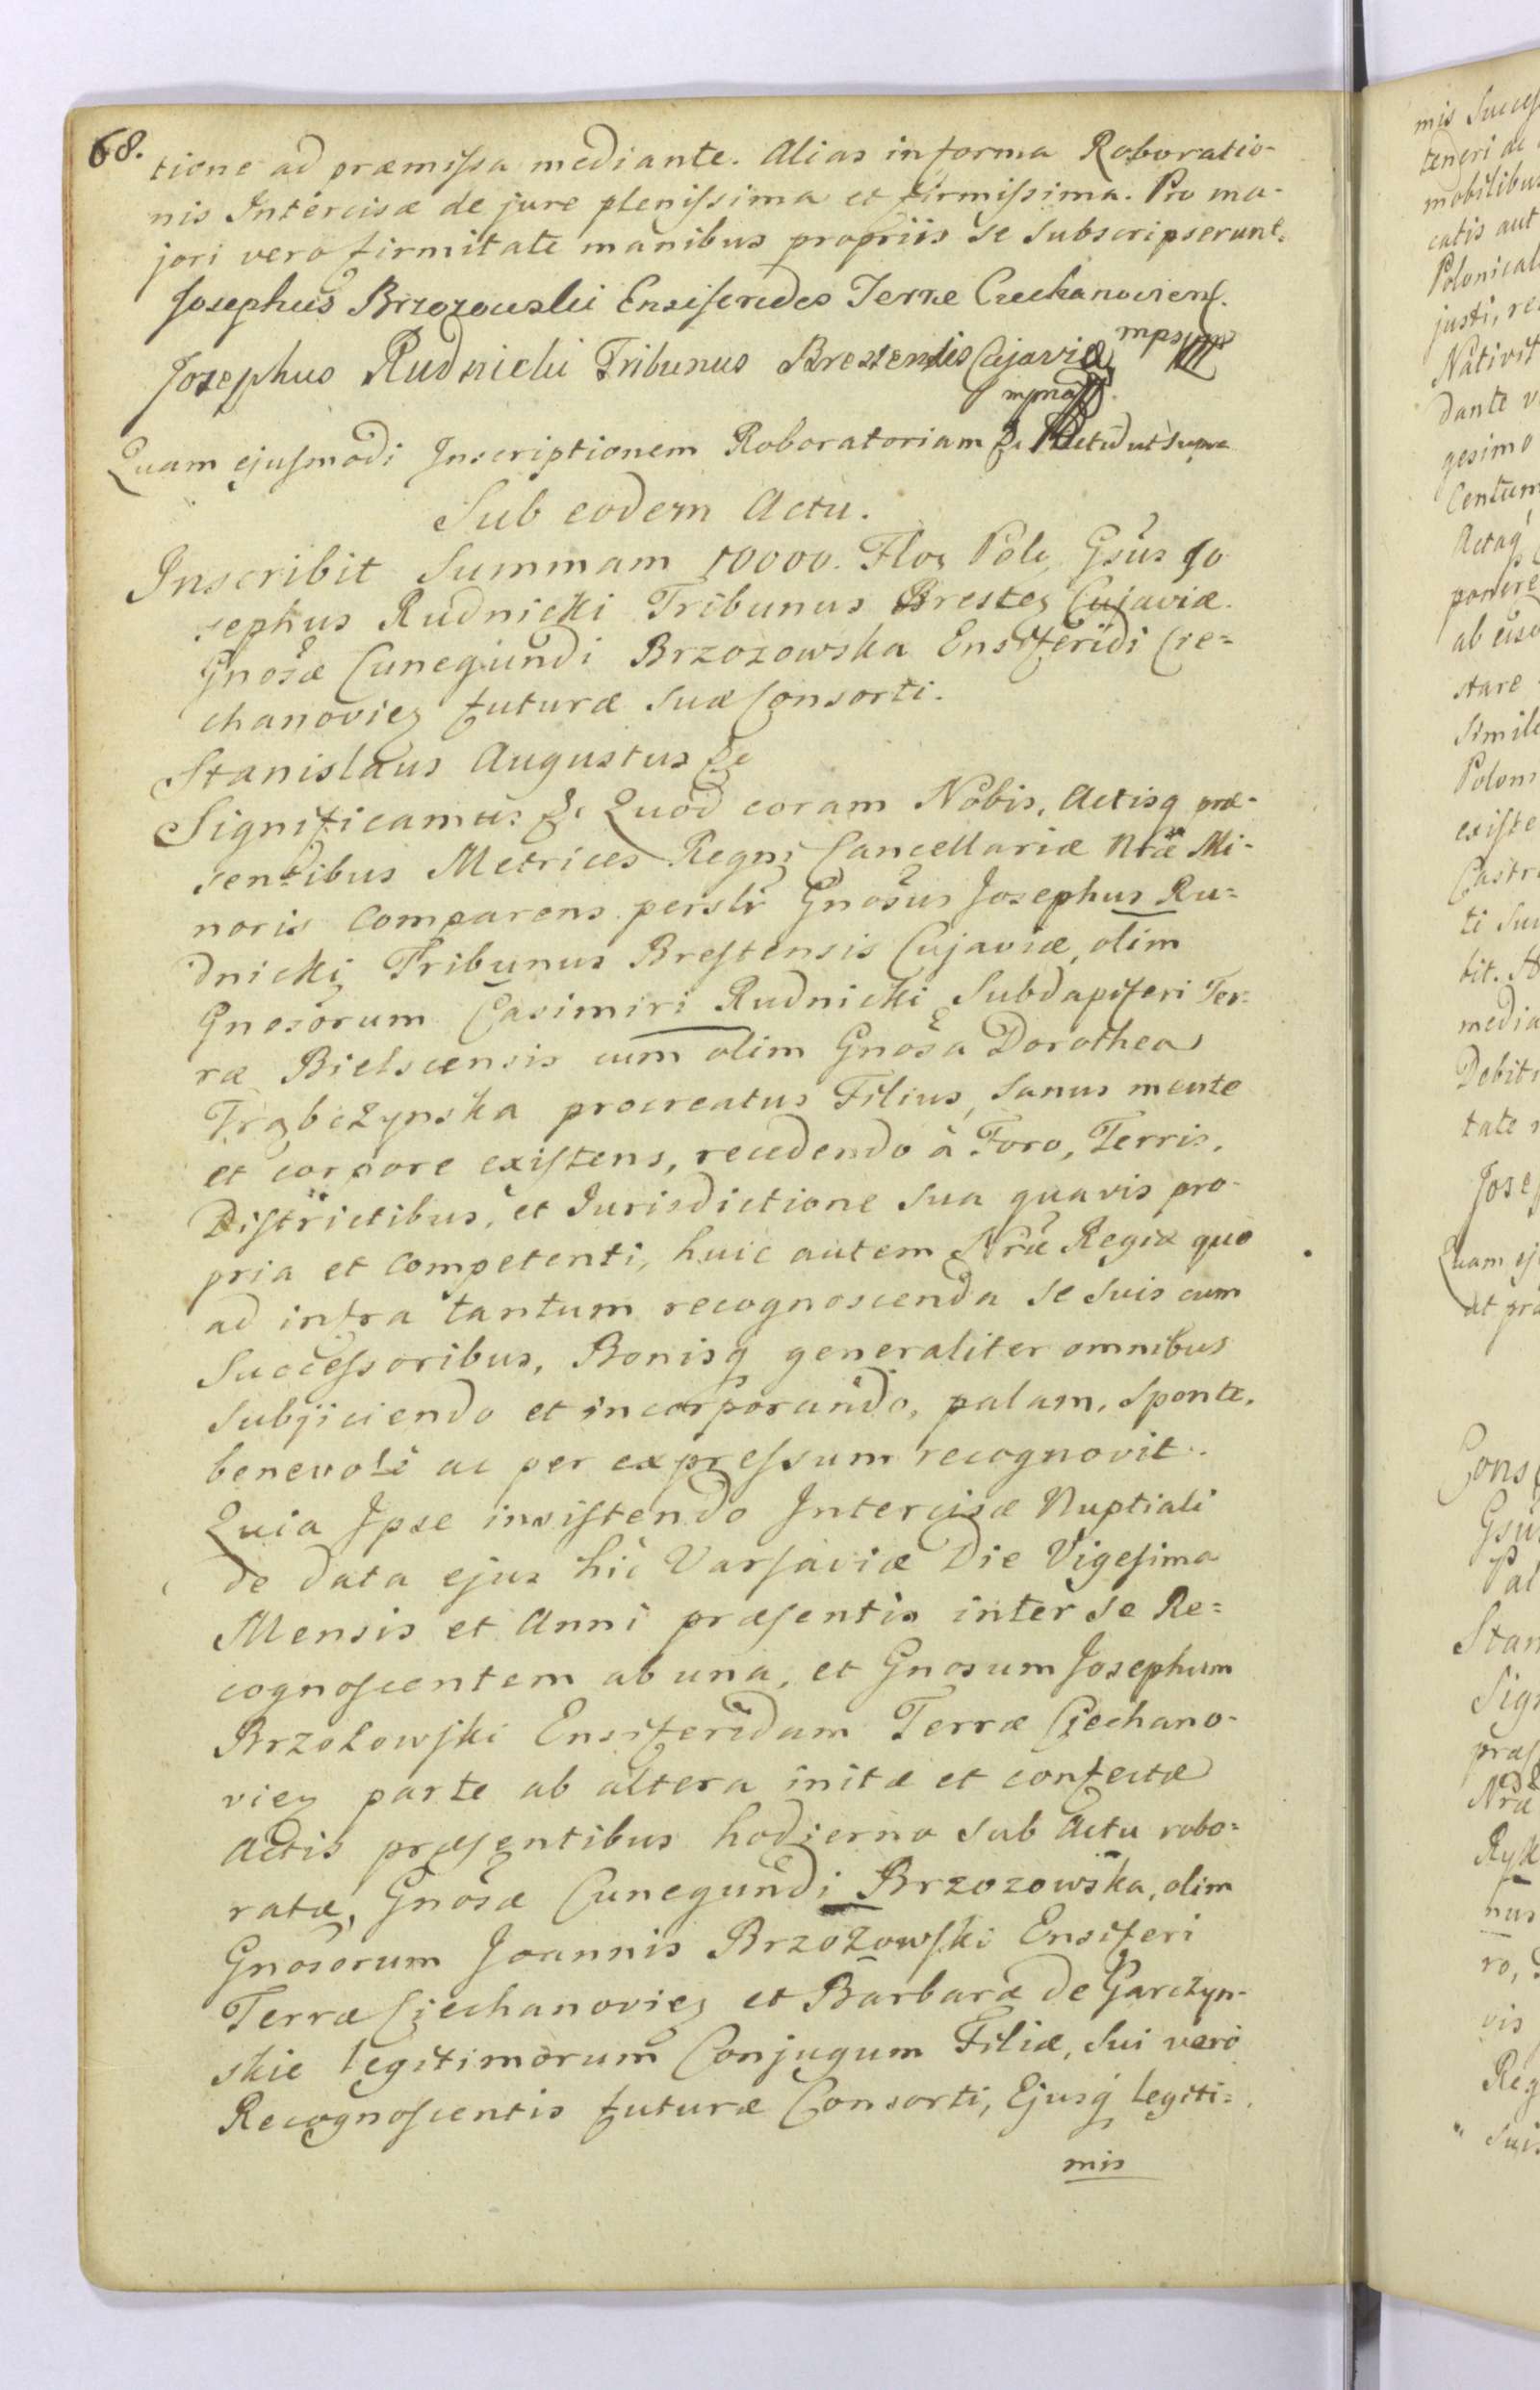 68.
tione ad præmissa mediante. Alias in forma Roboratio-
nis Intercisæ de jure plenissima et firmissima. Pro ma-
jori vero firmitate manibus propriis se subscripserunt.
Josephus Brzozowski Ensiferides Terræ Ciechanoviens.
Josephus Rudnicki Tribunus Brestensis Cujaviæ
Quam ejusmodi Inscriptionem Roboratoriam &c ut supra
Sub eodem Actu.
Inscribit Summam 10000. Flor Pol Gsus Jo
sephus Rudnicki Tribunus Breste Cujaviæ.
Gnosæ Cunegundi Brzozowska Ensiferidi Cie=
chanovie futuræ suæ Consorti.
Stanislaus Augustus &c
Significamus &c Quod coram Nobis, Actisq præ-
sentibus Metrices Regni Cancellariæ Nræ Mi-
noris Comparens perslr Gnosus Josephus Ru=
dnicki Tribunus Brestensis Cujaviæ, olim
Gnosorum Casimiri Rudnicki Subdapiferi Ter=
ræ Bielscensis cum olim Gnosa Dorothea
Trąbczynska procreatus Filius, sanus mente
et corpore existens, recedendo à Foro, Terris,
Districtibus, et Jurisdictione sua quavis pro-
pria et competenti, huic autem Nræ Regiæ quo
ad infra tantum recognoscenda se suis cum
Successoribus, Bonisq generaliter omnibus
subjiciendo et incorporando, palam, sponte,
benevolè ac per expressum recognovit.
Quia Ipse insistendo Intercisæ Nuptiali
de data ejus hic Varsaviæ Die Vigesima
Mensis et Anni præsentis inter se Re=
cognoscentem ab una, et Gnosum Josephum
Brzozowski Ensiferidam Terræ Ciechano-
vie parte ab altera initæ et confectæ
Actis præsentibus hodierno sub Actu robo=
ratæ, Gnosæ Cunegundi Brzozowska, olim
Gnosorum Joannis Brzozowski Ensiferi
Terræ Ciechanovie et Barbaræ de Garczyn-
skie legitimorum Conjugum Filiæ, sui vero
Recognoscentis futuræ Consorti, Ejusq legiti=
mis